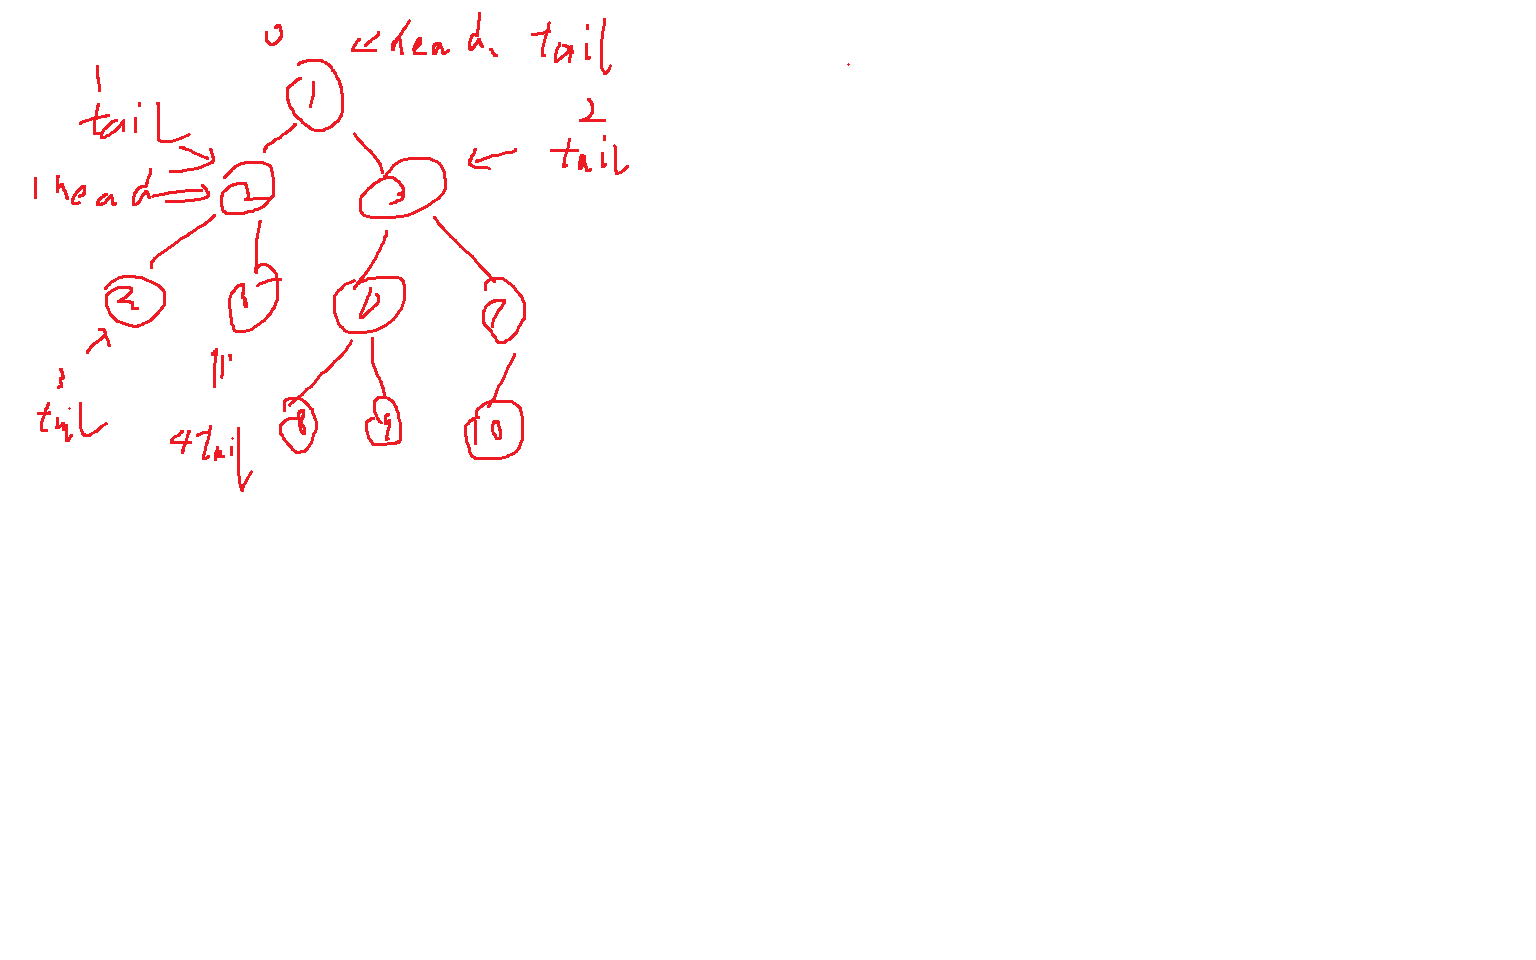 0
head, tail
1
1
tail
2
tail
1 head
2
3
7
3
tail
4 tail
8
9
10